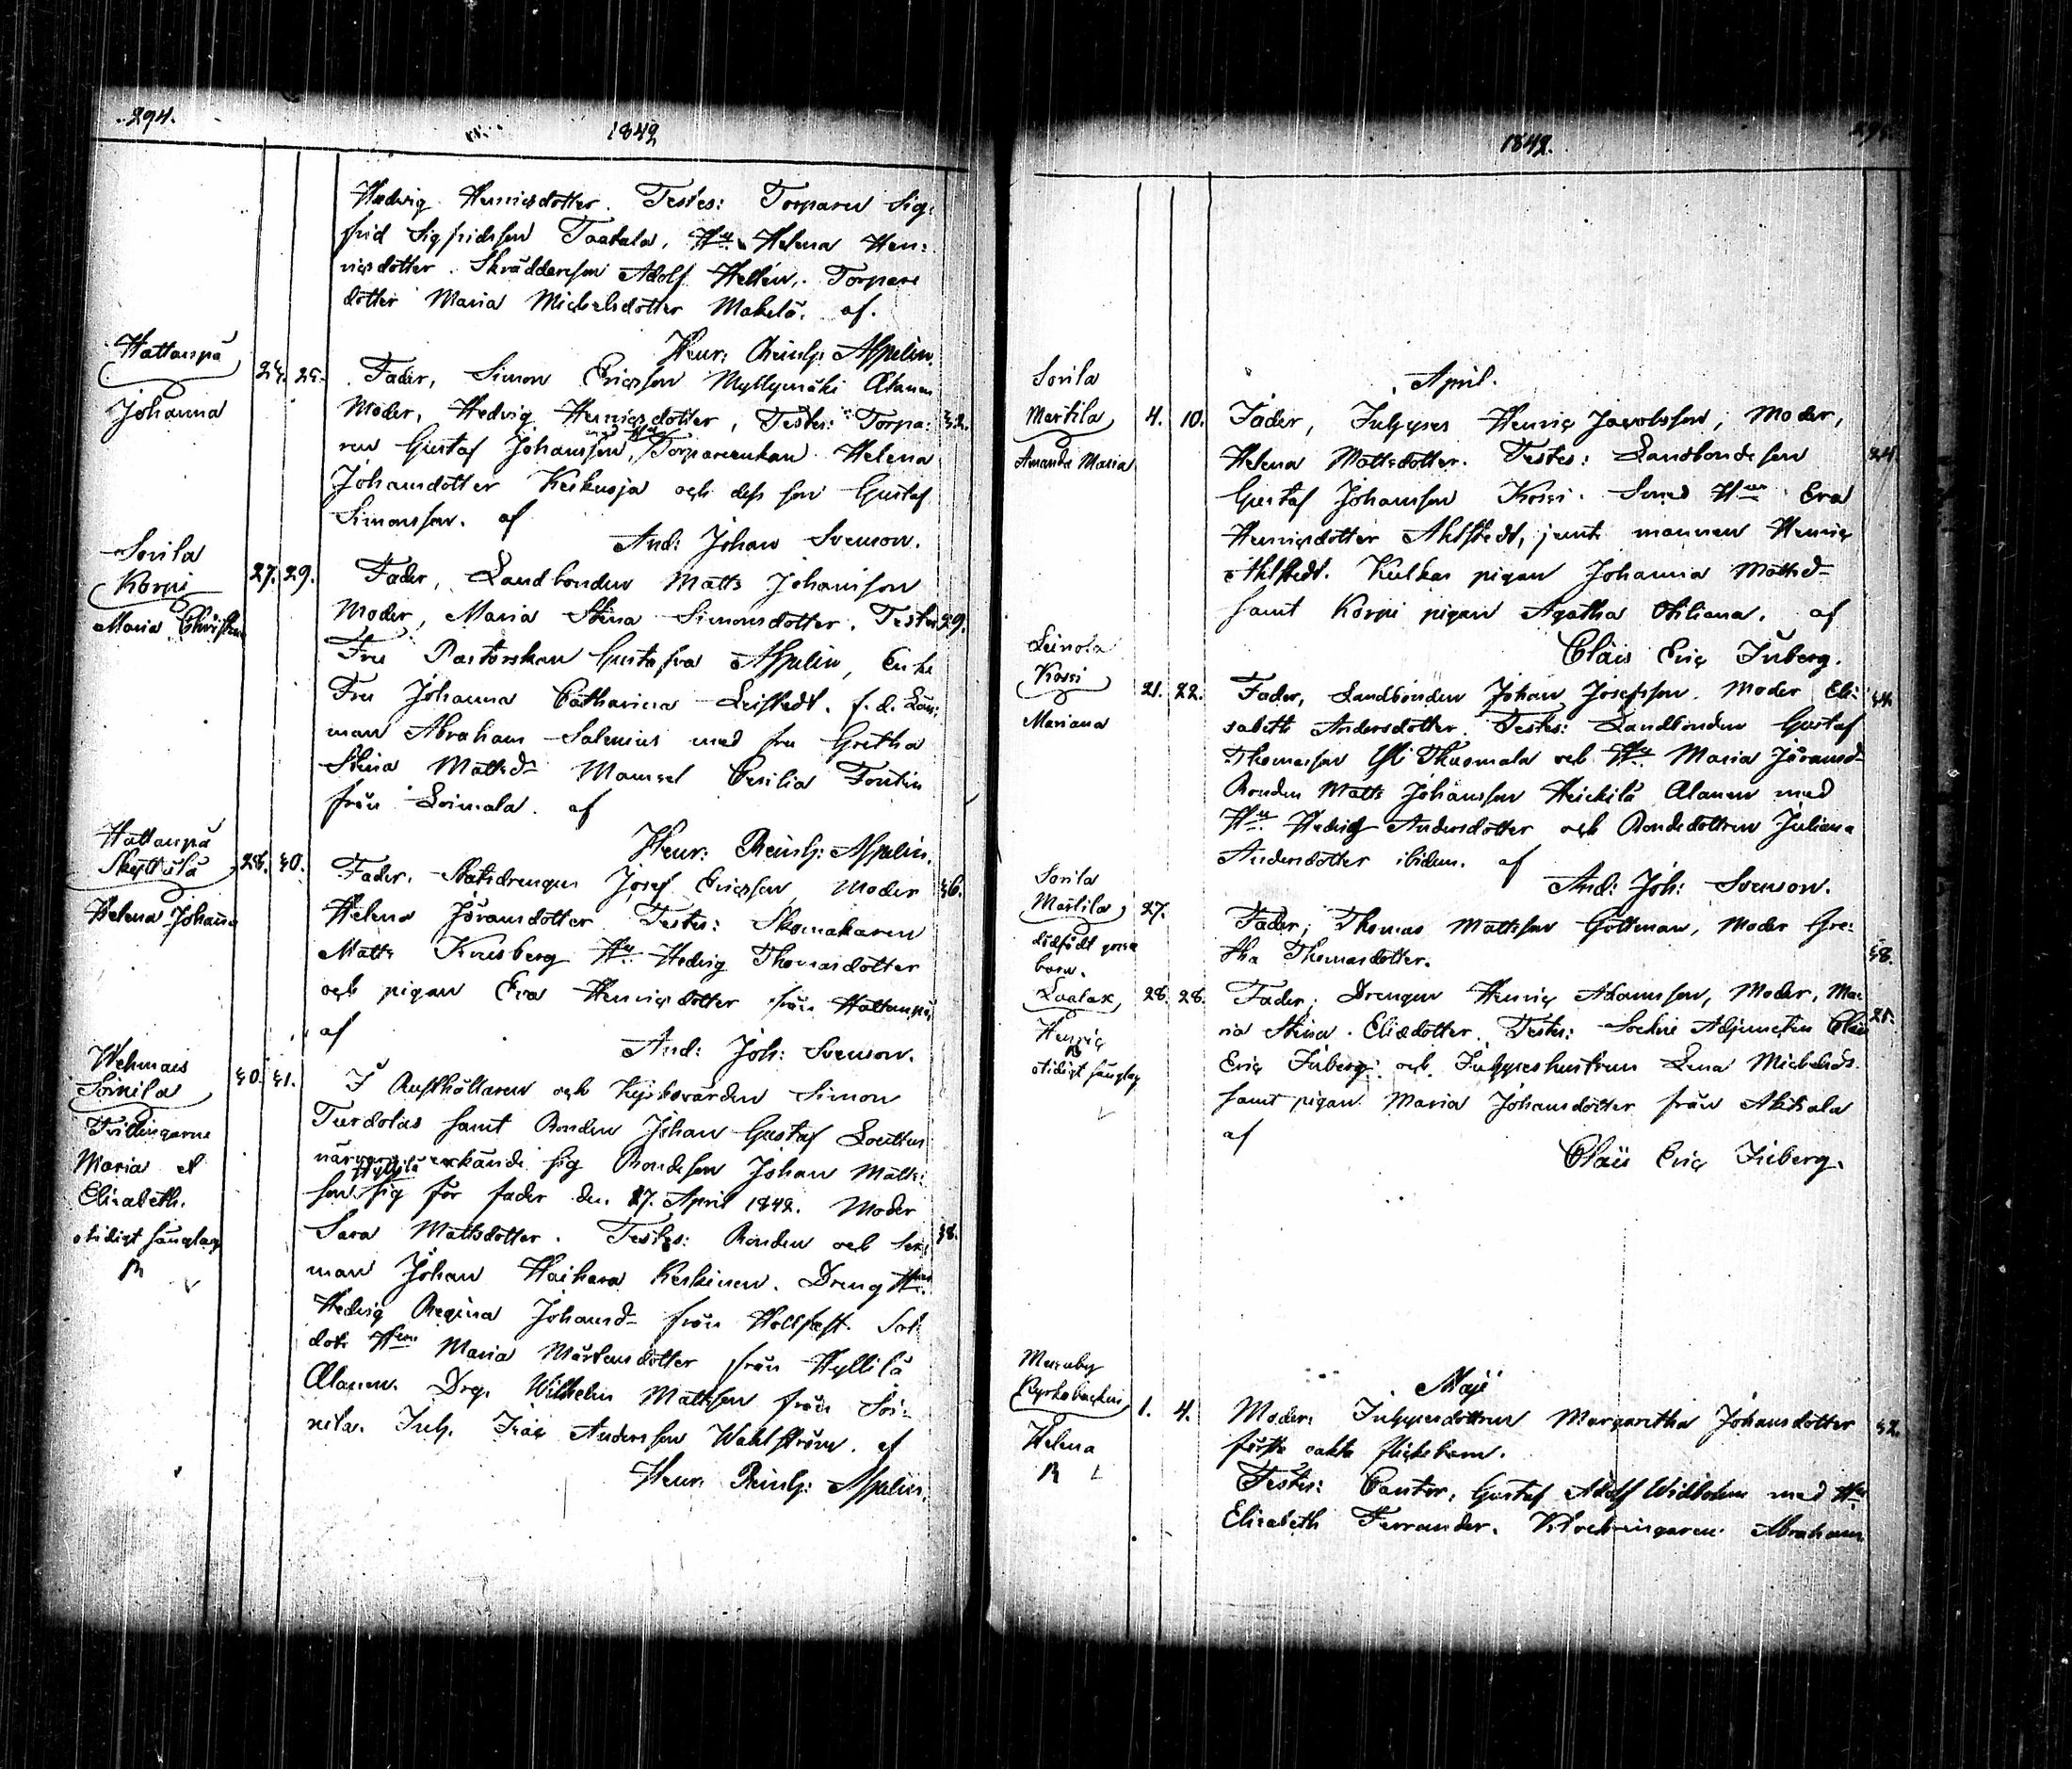 294.
1842
Hedvig Henricsdotter. Testes: Torparen Sig:
frid Sigfridsson Taatala, Hu Helena Hen:
ricsdotter. Skräddersson Adolf Hellén. Torpare
dotter Maria Michelsdotter Makelä. af.
Henr: Reinh: Aspelin.
Hattanpä
Johanna
24. 25. Fader, Simon Ericsson Myllymäki Alanen
Moder, Hedvig Henricsdotter, Testes: Torpa: 32.
ren Gustaf Johansson, Torpareenkan Helena
Johansdotter Keskusja och dess son Gustaf
Simonsson. af
And: Johan Svenson.
Sorila
Korpi
Maria Christina
27. 29. Fader, Landbonden Matts Johansson
Moder, Maria Stina Simonsdotter. Testes 29.
Fru Pastorskan Gustafva Aspelin, Enke
Fru Johanna Catharina Leistedt. f.d. Län:
man Abraham Salenius med fru Gretha
Stina Mattsd. Mamsel Cecilia Fontin
från Loimala. af
Henr: Reinh: Aspelin.
Hattanpä
Skyttälä
Helena Johanna
28. 30. Fader, Statsdrengen Josef Ericsson, Moder 36.
Helena Göransdotter Testes: Skomakaren
Matts Hu Hedvig Thomasdotter
och pigan Eva Henricsdotter från Hattanpä
af
And: Joh: Svenson.
Wehmais
Soinila
Tvillingarne
Maria et
Elisabeth.
otidigt sänglag
30. 31. I Rusthållaren och Kyrkovärden Simon
Turdolas samt Bonden Johan Gustaf Louttus
närvaro erkände sig Bondeson Johan Matts:
son Hyllilä sig för fader den 27. April 1842. Moder
Sara Mattsdotter. Testes: Bonden och Sex: 38.
man Johan Haihara Keskinen. Dreng Hun
Hedvig Regina Johansd. från Hollfast. Sol:
dats Hun Maria Mårtensdotter från Hyllilä
Alanen. Drg. Wilhelm Mattsson från Soi:
nila. Inh. Isac Andersson Wahlström. af
Henr: Reinh: Aspelin.
1842.
April.
Sorila
Martila
Amanda Maria
4. 10. Fader, Inhyses Henric Jacobsson, Moder,
Helena Mattsdotter. Testes: Landbondeson 24.
Gustaf Johansson Kossi. Smeds Hun Eva
Henricsdotter Ahlstedt, jemte mannen Henric
Ahlstedt. Kulkas pigan Johanna Mattsd.
samt Korpi pigan Agatha Otiliana. af
Claës Eric Inberg.
Leinola
Kossi
Mariana
21. 22. Fader, Landbonden Johan Josefsson. Moder Eli: 34.
sabeth Andersdotter. Testes: Landbonden Gustaf
Thomasson Yli Thuomala och Hu Maria Göransd.
Bonden Matts Johansson Heickilä Alanen med
Hu Hedvig Andersdotter och Bondedottren Juliana
Andersdotter ibidem. af
And: Joh: Svenson.
Sorila
Martila
dödfödt gosse
barn.
27. Fader, Thomas Mattsson Göttman, Moder Gre: 38.
tha Thomasdotter.
Laalax,
Henric
otidigt sänglag
28. 28. Fader, Drengen Henric Adamsson, Moder, Ma: 25.
ria Stina Eliædotter. Testes: Sockne Adjuncten Claës
Eric Inberg. och Inhyseshustrun Lena Michelsd.
samt pigan Maria Johansdotter från Aitiala
af
Claës Eric Inberg.
Maji
Messuby
Kyrkobacken
Helena
1. 4. Moder: Inhysesdottren Margaretha Johansdotter 32.
första oäkta flickebarn.
Testes: Cantor, Gustaf Adolf Widbohm med Hu
Elisabeth Ferrander. Klockringaren Abraham